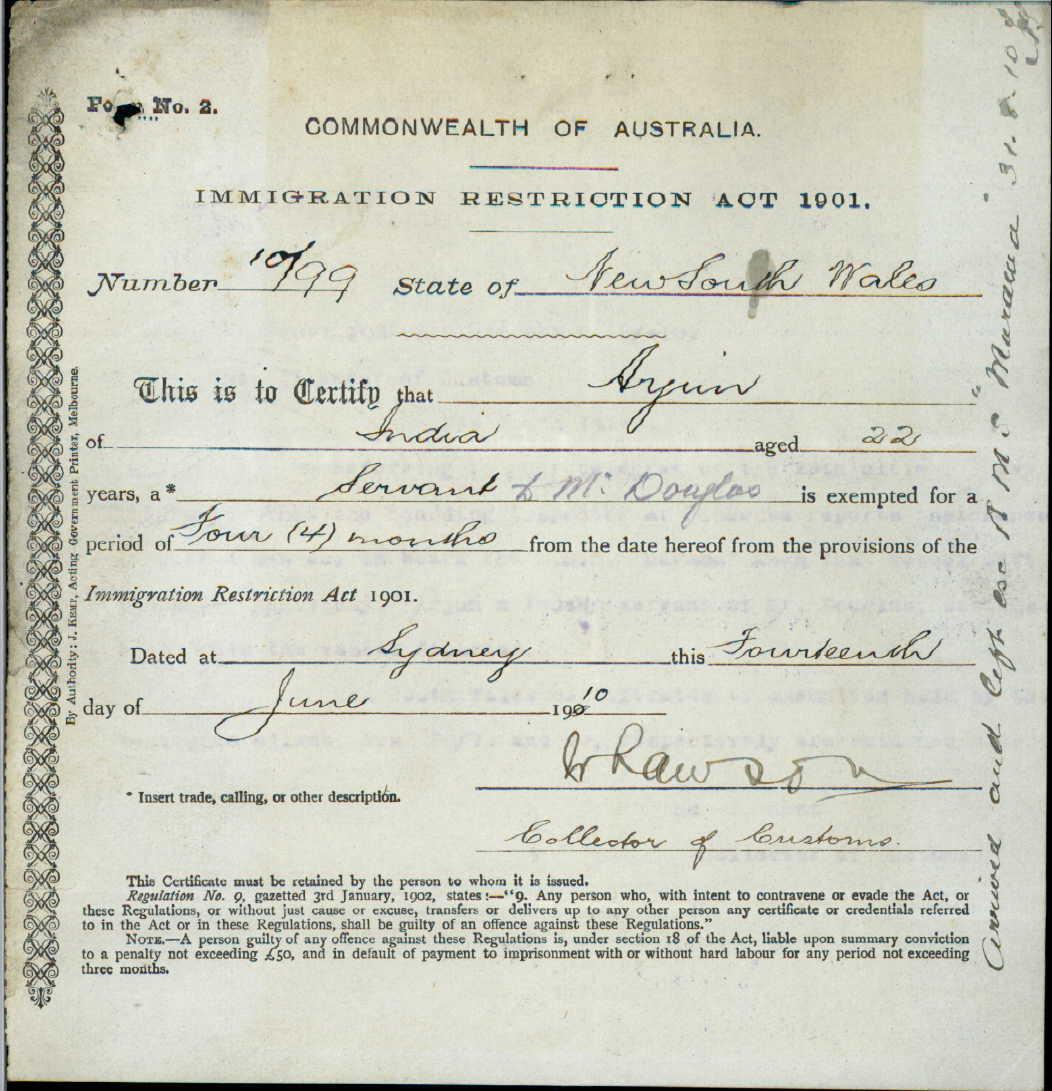 Form No. 2.
COMMONWEALTH OF AUSTRALIA.
IMMIGRATION RESTRICTION ACT 1901.
Number 10/99 State of New South Wales
This is to Certify that Arjun
of India aged 22
years, a* Servant to Mr Douglas is exempted for a
period of Four (4) months from the date hereof from the provisions of the
Immigration Restriction Act 1901.
Dated at Sydney this Fourteenth
day of June 1910
Rawson
* Insert trade, calling, or other description.
Collector of Customs.
This Certificate must be retained by the person to whom it is issued.
Regulation No. 9, gazetted 3rd January, 1902, states:—"9. Any person who, with intent to contravene or evade the Act, or
these Regulations, or without just cause or excuse, transfers or delivers up to any other person any certificate or credentials referred
to in the Act or in these Regulations, shall be guilty of an offence against these Regulations."
NOTE.—A person guilty of any offence against these Regulations is, under section 18 of the Act, liable upon summary conviction
to a penalty not exceeding £50, and in default of payment to imprisonment with or without hard labour for any period not exceeding
three months.
By Authority: J. KEMP, Acting Government Printer, Melbourne.
arrived and left ex R.M.S "Marama" 31.8.10